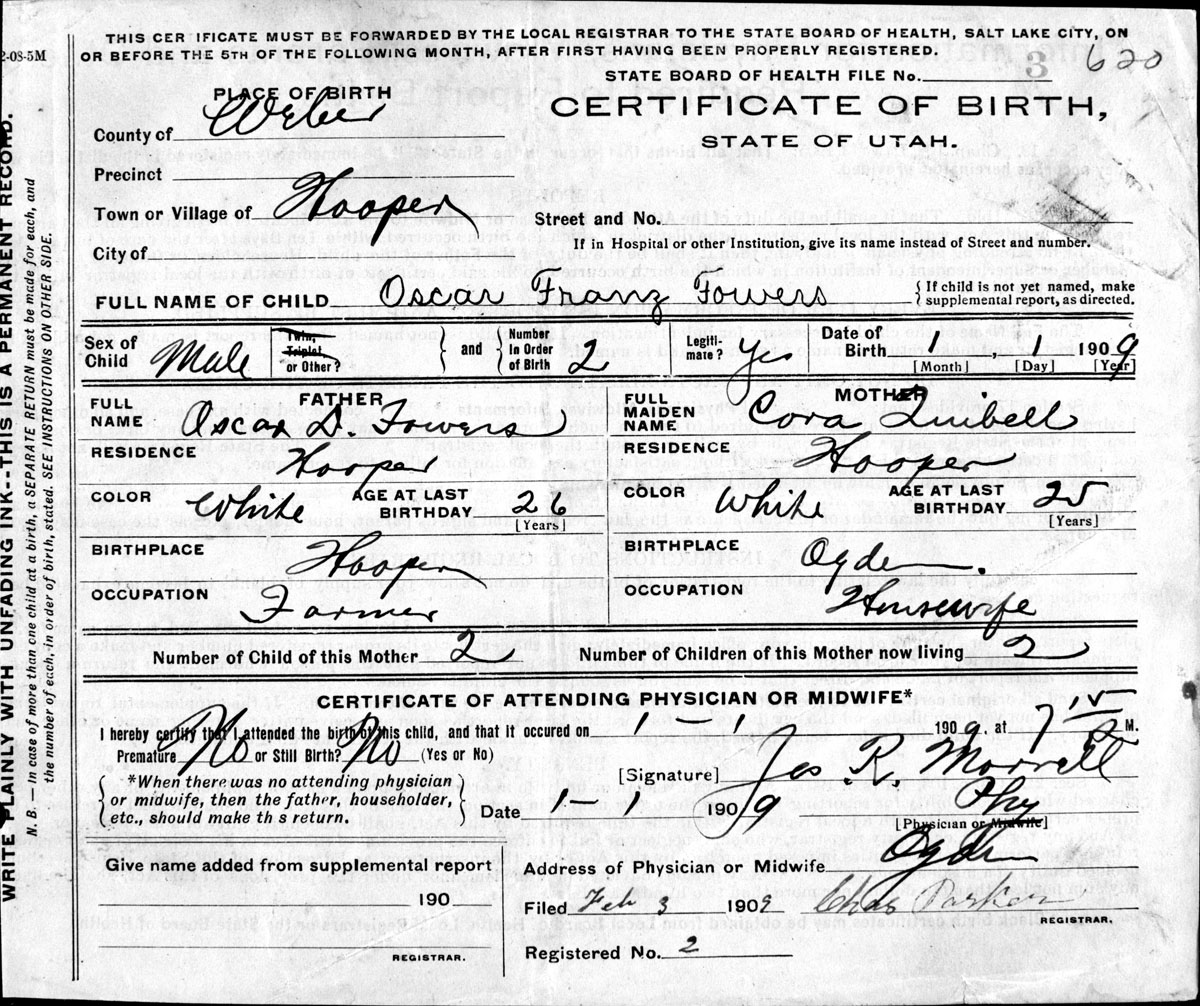 2-08-5M
THIS CERTIFICATE MUST BE FORWARDED BY THE LOCAL REGISTRAR TO THE STATE BOARD OF HEALTH, SALT LAKE CITY, ON
OR BEFORE THE 5TH OF THE FOLLOWING MONTH, AFTER FIRST HAVING BEEN PROPERLY REGISTERED.
STATE BOARD OF HEALTH FILE No. 3 620
PLACE OF BIRTH
CERTIFICATE OF BIRTH,
STATE OF UTAH.
County of Weber
Precinct
Town or Village of Hooper
Street and No.
City of
If in Hospital or other Institution, give its name instead of Street and number.
FULL NAME OF CHILD Oscar Franz Fowers
{ If child is not yet named, make
{ supplemental report, as directed.
Sex of Child Male
Twin, Triplet or Other?
and
Number In Order of Birth 2
Legiti-mate? Yes
Date of Birth 1 1 1909
[Month] [Day] [Year]
FATHER
FULL NAME Oscar D. Fowers
RESIDENCE Hooper
COLOR White AGE AT LAST BIRTHDAY 26
[Years]
BIRTHPLACE Hooper
OCCUPATION Farmer
MOTHER
FULL MAIDEN NAME Cora Quibell
RESIDENCE Hooper
COLOR White AGE AT LAST BIRTHDAY 25
[Years]
BIRTHPLACE Ogden.
OCCUPATION Housewife
Number of Child of this Mother 2
Number of Children of this Mother now living 2
CERTIFICATE OF ATTENDING PHYSICIAN OR MIDWIFE*
I hereby certify that I attended the birth of this child, and that it occured on 1 1 1909. at 7 15 M.
Premature No or Still Birth? No (Yes or No)
{ *When there was no attending physician }
{ or midwife, then the father, householder, }
{ etc., should make th s return. }
[Signature] Jas R. Morrell
Date 1 1 1909
Phy
[Physician or Midwife]
Address of Physician or Midwife Ogden
Give name added from supplemental report
190
REGISTRAR.
Filed Feb 3 1909 Chas Parker
REGISTRAR.
Registered No. 2
WRITE PLAINLY WITH UNFADING INK--THIS IS A PERMANENT RECORD.
N. B.—In case of more than one child at a birth, a SEPARATE RETURN must be made for each, and
the number of each, in order of birth, stated. SEE INSTRUCTIONS ON OTHER SIDE.